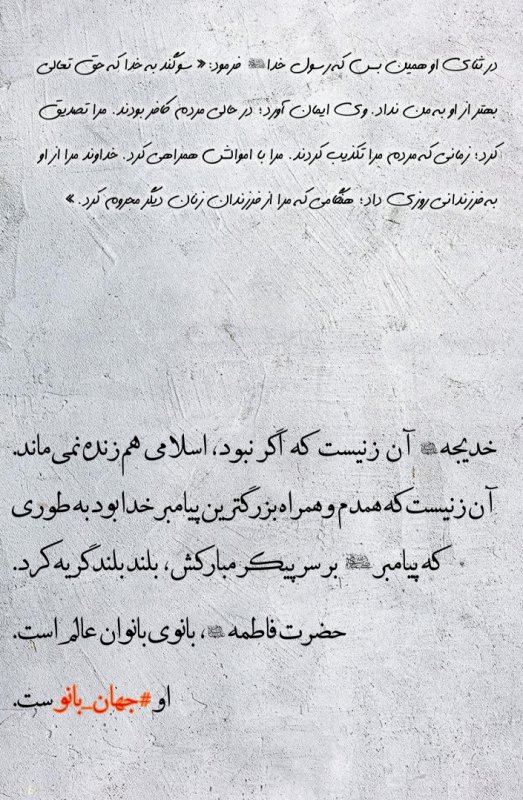 در ثنای او همین بس که رسول خدا ﷺ فرمود: « سوگند به خدا که حق تعالی
بهتر از او به من نداد. وی ایمان آورد؛ در حالی مردم کافر بودند. مرا تصدیق
کرد؛ زمانی که مردم مرا تکذیب کردند. مرا با اموالش همراهی کرد. خداوند مرا از او
به فرزندانی روزی داد؛ هنگامی که مرا از فرزندان زنان دیگر محروم کرد. »
خدیجه آن زنیست که اگر نبود، اسلامی هم زنده نمی‌ماند.
آن زنیست که همدم و همراه بزرگترین پیامبر خدا بود به طوری
که پیامبر ﷺ بر سر پیکر مبارکش، بلند بلند گریه کرد.
حضرت فاطمه ، بانوی بانوان عالم است.
او #جهان_بانوست.